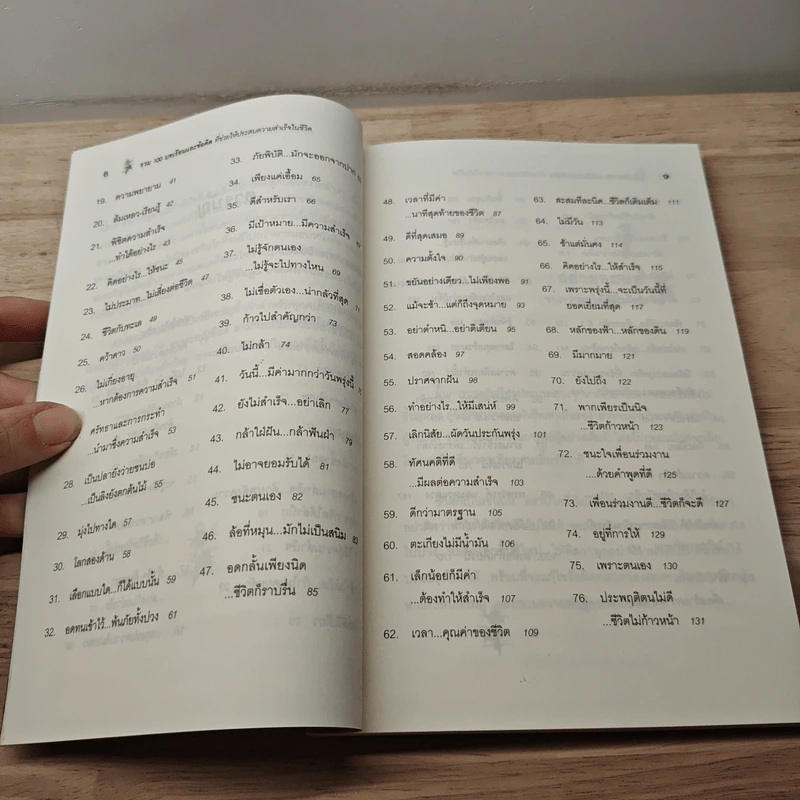 8 รวม 100 บทเรียนและข้อคิด ที่ช่วยให้ประสบความสำเร็จในชีวิต
19. ความพยายาม 41
20. ล้มเหลว-เรียนรู้ 42
21. พิชิตความสำเร็จ
...ทำได้อย่างไร 43
22. คิดอย่างไร...ให้ชนะ 45
23. ไม่ประมาท...ไม่เสี่ยงต่อชีวิต 47
24. ชีวิตกับทะเล 49
25. คว้าดาว 50
26. ไม่เกี่ยงอายุ
...หากต้องการความสำเร็จ 51
ศรัทธาและการกระทำ
...นำมาซึ่งความสำเร็จ 53
28. เป็นปลายังว่ายชนบ่อ
...เป็นลิงยังตกต้นไม้ 55
29. มุ่งไปทางใด 57
30. โลกสองด้าน 58
31. เลือกแบบใด...ก็ได้แบบนั้น 59
32. อดทนเข้าไว้...พ้นภัยทั้งปวง 61
33. ภัยพิบัติ...มักจะออกจากปาก
34. เพียงแค่เอื้อม 65
35. ดีสำหรับเรา 66
36. มีเป้าหมาย...มีความสำเร็จ
37. ไม่รู้จักตนเอง
...ไม่รู้จะไปทางไหน 69
38. ไม่เชื่อตัวเอง...น่ากลัวที่สุด
39. ก้าวไปสำคัญกว่า 73
40. ไม่กล้า 74
41. วันนี้...มีค่ามากกว่าวันพรุ่งนี้
42. ยังไม่สำเร็จ...อย่าเลิก 77
43. กล้าใฝ่ฝัน...กล้าฟันฝ่า 79
44. ไม่อาจยอมรับได้ 81
45. ชนะตนเอง 82
46. ล้อที่หมุน...มักไม่เป็นสนิม 83
47. อดกลั้นเพียงนิด
...ชีวิตก็ราบรื่น 85
9
48. เวลาที่มีค่า
...นาทีสุดท้ายของชีวิต 87
49. ดีที่สุดเสมอ 89
50. ความตั้งใจ 90
51. ขยันอย่างเดียว...ไม่เพียงพอ 91
52. แม้จะช้า...แต่ก็ถึงจุดหมาย 93
53. อย่าตำหนิ...อย่าติเตียน 95
54. สอดคล้อง 97
55. ปราศจากฝัน 98
56. ทำอย่างไร...ให้มีเสน่ห์ 99
57. เลิกนิสัย...ผัดวันประกันพรุ่ง 101
58. ทัศนคติที่ดี
...มีผลต่อความสำเร็จ 103
59. ดีกว่ามาตรฐาน 105
60. ตะเกียงไม่มีน้ำมัน 106
61. เล็กน้อยก็มีค่า
...ต้องทำให้สำเร็จ 107
62. เวลา...คุณค่าของชีวิต 109
63. สะสมทีละนิด...ชีวิตก็เติมเต็ม 111
64. ไม่มีวัน 113
65. ช้าแต่มั่นคง 114
66. คิดอย่างไร...ให้สำเร็จ 115
67. เพราะพรุ่งนี้...จะเป็นวันนี้ที่
ยอดเยี่ยมที่สุด 117
68. หลักของฟ้า...หลักของดิน 119
69. มีมากมาย 121
70. ยังไปถึง 122
71. พากเพียรเป็นนิจ
...ชีวิตก้าวหน้า 123
72. ชนะใจเพื่อนร่วมงาน
...ด้วยคำพูดที่ดี 125
73. เพื่อนร่วมงานดี...ชีวิตก็จะดี 127
74. อยู่ที่การให้ 129
75. เพราะตนเอง 130
76. ประพฤติตนไม่ดี
...ชีวิตไม่ก้าวหน้า 131